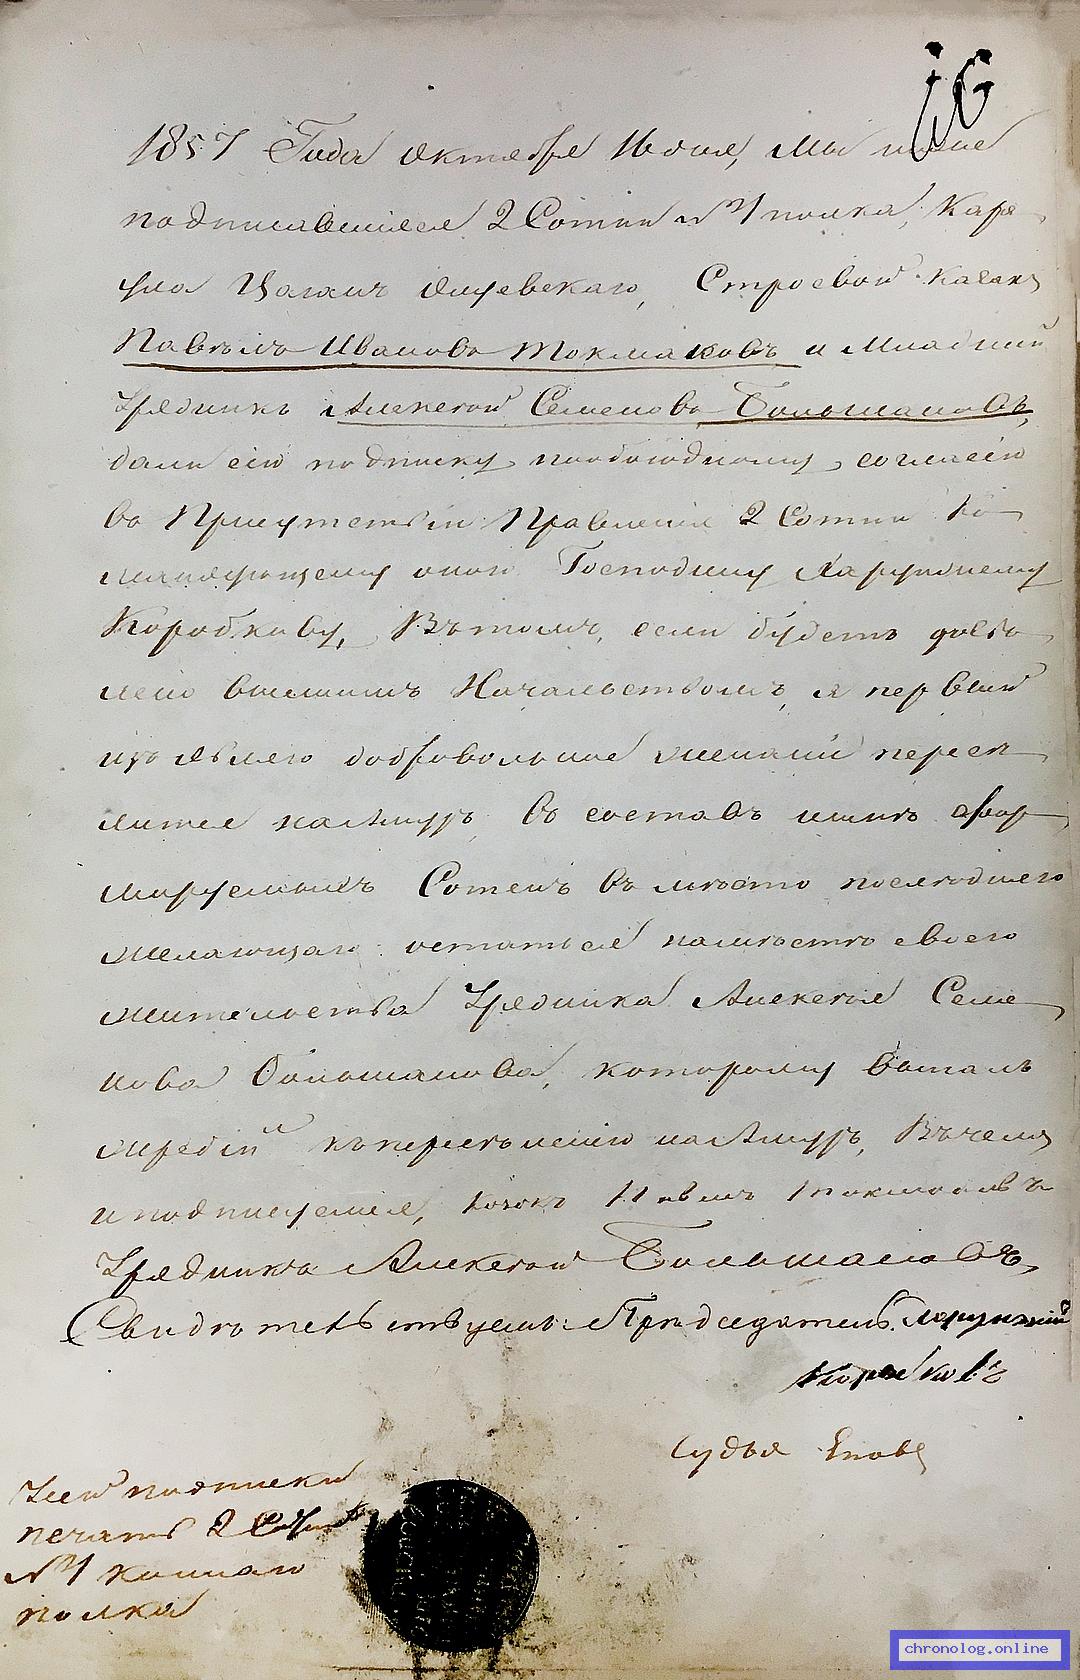 16
1857 Года октября 16 дня, Мы ниже
подписавшиеся 2 Сотни № 4 полка, Кара
ула Цаган Олуевскаго, Строевой казакъ
Павелъ Ивановъ Токмаковъ и Младший
Урядникъ Алексей Семеновъ Большаковъ,
дали сію подписку пообоюдному согласію
въ Присутствіи Правленія 2 Сотни Ко
мандующему оной Господину Хорунжему
Коробкову, Вътомъ, если будетъ дозво
лено высшимъ Начальствомъ, я первый
изъявляю добровольное желаніе пересе
литься наАмуръ въ составъ вновь фор
мируемыхъ Сотенъ въ место последняго
желающаго остаться наместе своего
жительства Урядника Алексея Семе
нова Большакова, которому выпалъ
жребій къпереселенію наАмуръ, Въчемъ
и подписуемся, казакъ Павелъ Токмаковъ
Урядникъ Алексей Большаковъ,
Свидѣтельствуемъ: Председатель Хорунжий
Коробковъ
Судья Епов
Усей подписки
печать 2 Сотни
№ 4 коннаго
полка
chronolog.online